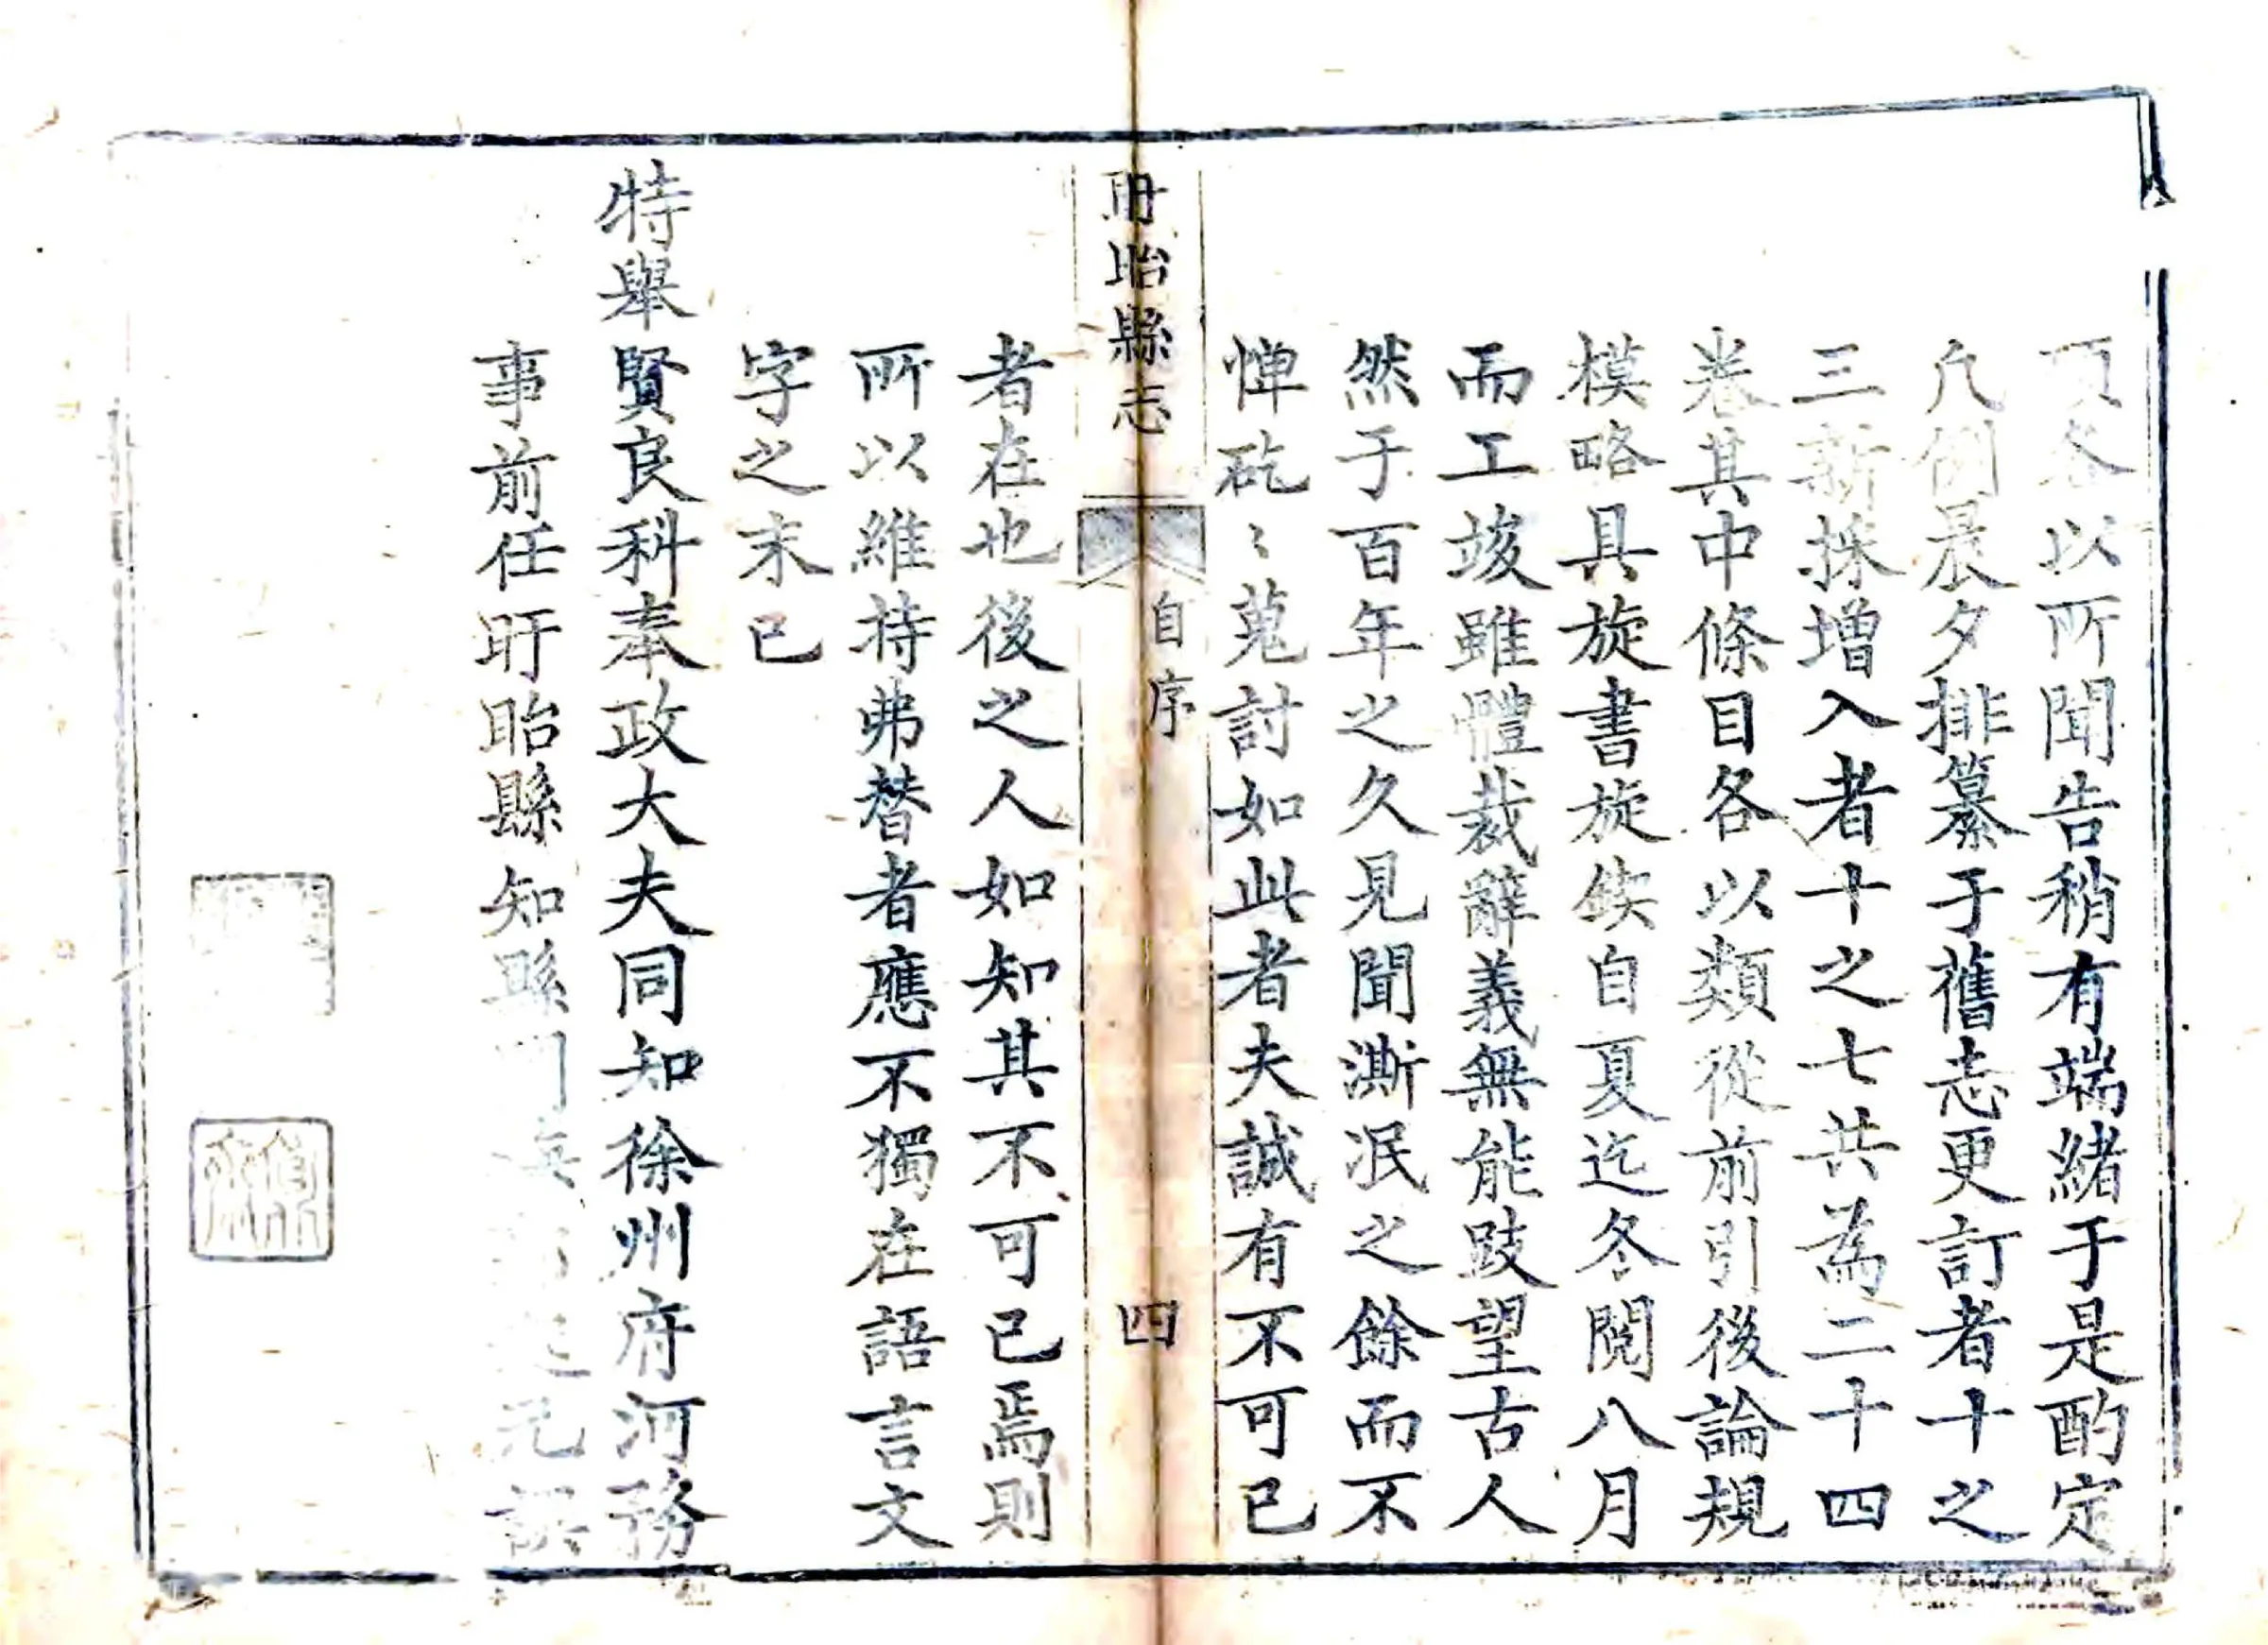 項各以所聞告稍有端緒于是酌定
凡例晨夕排纂于舊志更訂者十之
三新採增入者十之七共為二十四
卷其中條目各以類從前引後論規
模略具旋書旋鋟自夏迄冬閱八月
而工竣雖體裁辭義無能跂望古人
然于百年之久見聞澌泯之餘而不
憚矻〻蒐討如此者夫誠有不可已
盱眙縣志 自序 四
者在也後之人如知其不可已焉則
所以維持弗替者應不獨在語言文
字之末已
特舉賢良科奉政大夫同知徐州府河務
事前任盱眙縣知縣